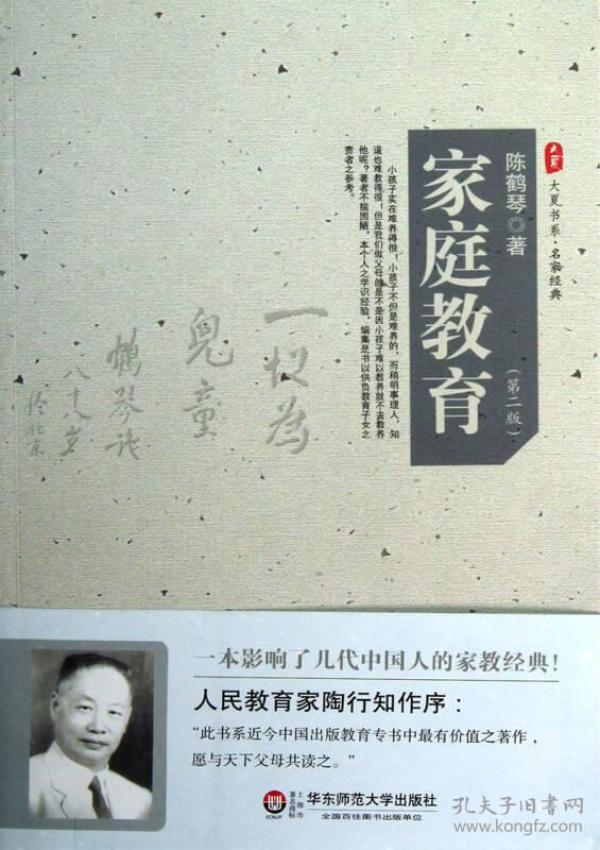 大夏
大夏书系·名家经典
陈鹤琴◎著
家庭教育
(第二版)
小孩子实在难养得很！小孩子不但是难养的，而稍明事理人，知
道也难教得很！但是我们做父母的是不是因小孩子难以教养就不去教养
他呢？著者不揣固陋，本个人之学识经验，编集是书以供负教育子女之
责者之参考。
一切为
兒童
鹤琴识
八十八岁
于北京
一本影响了几代中国人的家教经典！
人民教育家陶行知作序：
“此书系近今中国出版教育专书中最有价值之著作，
愿与天下父母共读之。”
ECNUP
上海市
著名商标
华东师范大学出版社
全国百佳图书出版单位
孔夫子旧书网
www.kongfz.com